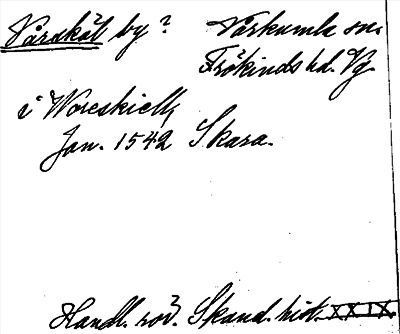 Vårskäl by? Vårkumla sn.
Frökinds hd. Vg.
i Woreskiell,
Jan. 1542 Skara.
Handl. rör. Skand. hist. XXIX